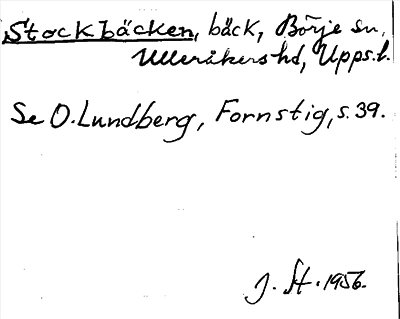 Stockbäcken, bäck, Börje sn,
Ulleråkers hd, Upps.l.
Se O. Lundberg, Fornstig, s. 39.
J. St. 1956.